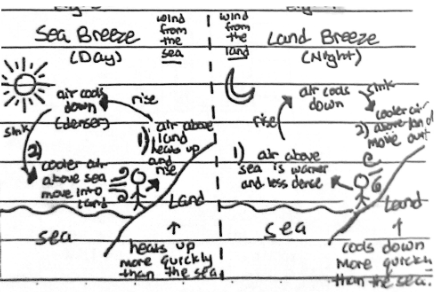 Sea Breeze
(Day)
wind
from
the
sea
air cools
down
(denser)
rise
sink
1) air above
land
heats up
and
rise
2)
cooler air
above sea
move into
land
Land
sea
↑
heats up
more quickly
than the sea
wind
from
the
land
Land Breeze
(Night)
air cools
down
sink
rise
2) cooler air
above land
move out
1) air above
sea is warmer
and less dense
Land
sea
↑
cools down
more quickly
than the sea.